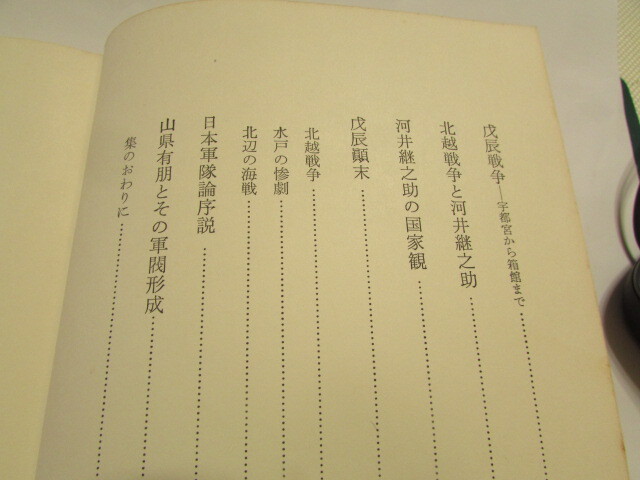 戊辰戦争——宇都宮から箱館まで
北越戦争と河井継之助
河井継之助の国家観
戊辰顚末
北越戦争
水戸の惨劇
北辺の海戦
日本軍隊論序説
山県有朋とその軍閥形成
集のおわりに